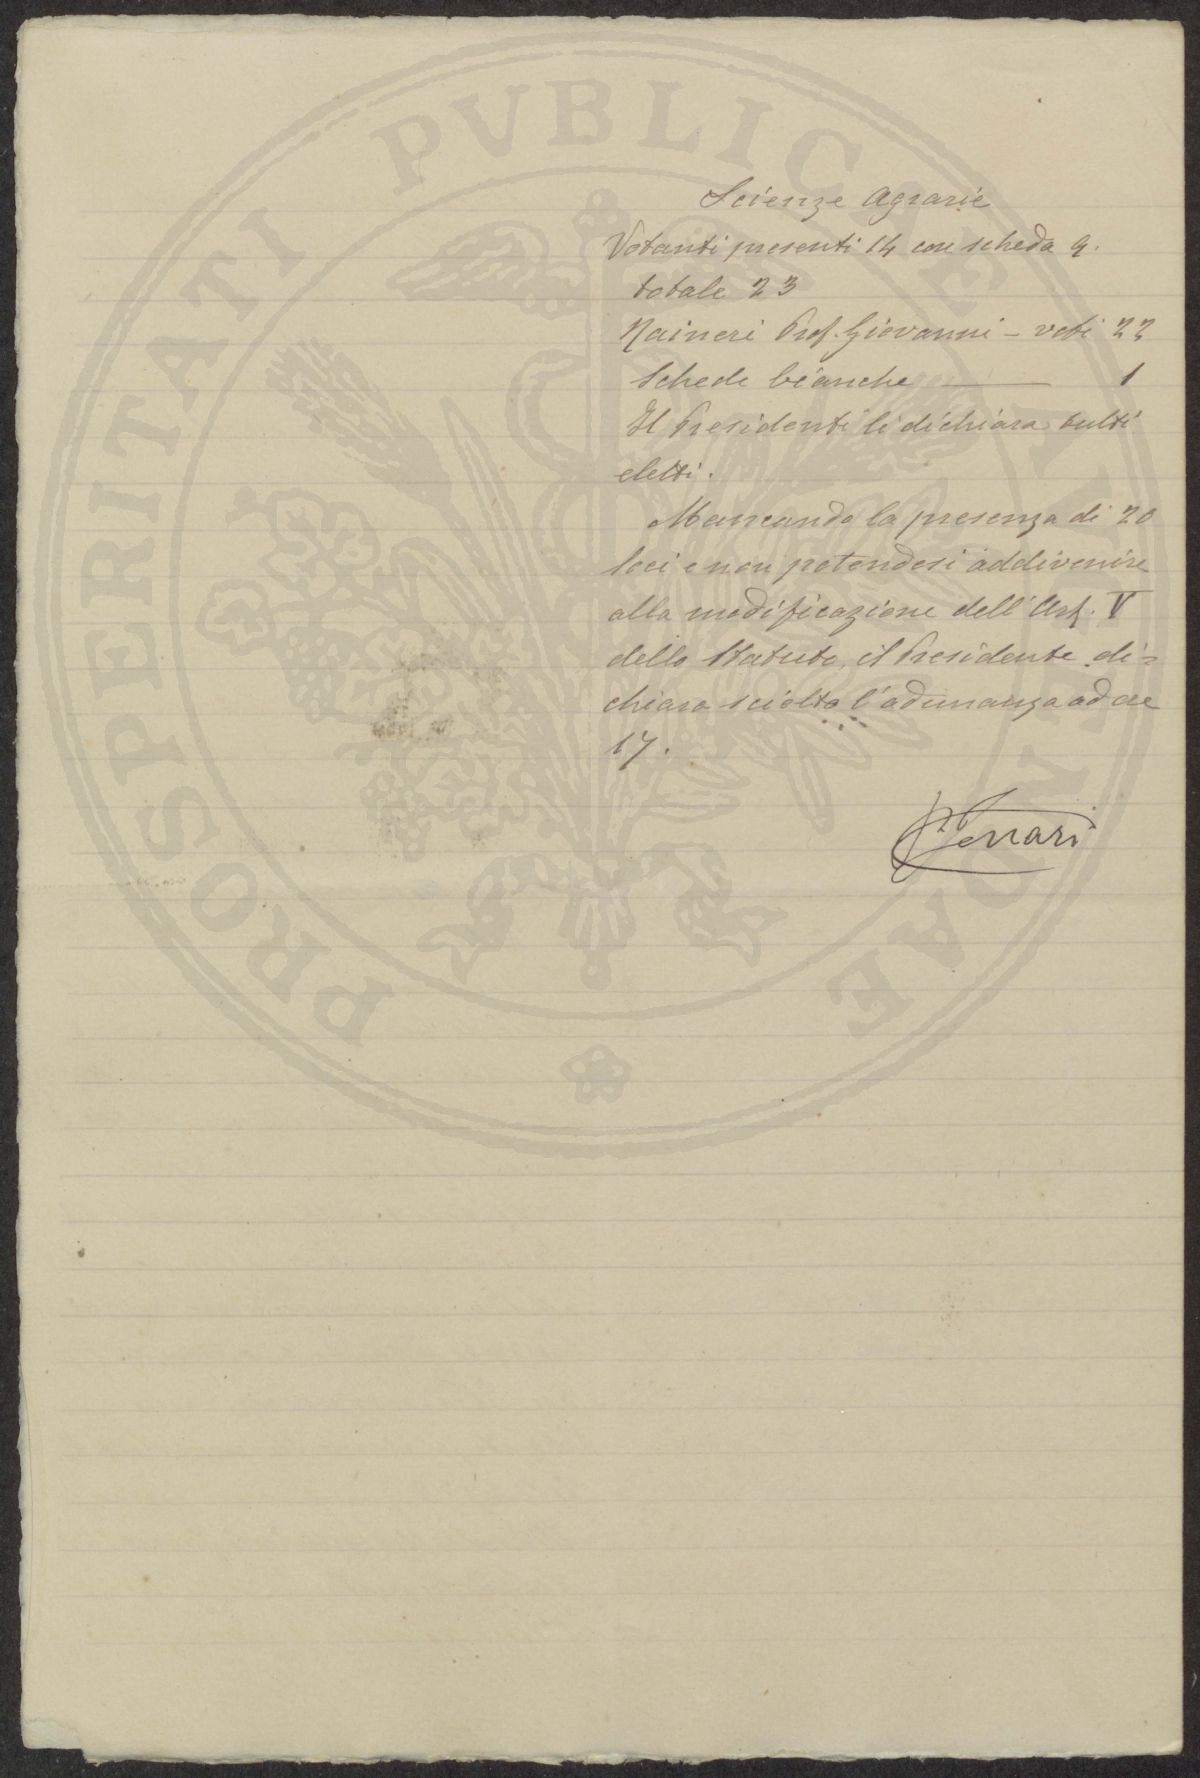 PROSPERITATI PVBLICAE AVGENDAE
Scienze Agrarie
Votanti presenti 14 con scheda 9.
totale 23
Raineri Prof. Giovanni – voti 22
Schede bianche 1
Il Presidente li dichiara tutti
eletti.
Mancando la presenza di 20
soci e non potendosi addivenire
alla modificazione dell'Art. V
dello Statuto, il Presidente di=
chiara sciolta l'adunanza ad ore
17.
Ferrari